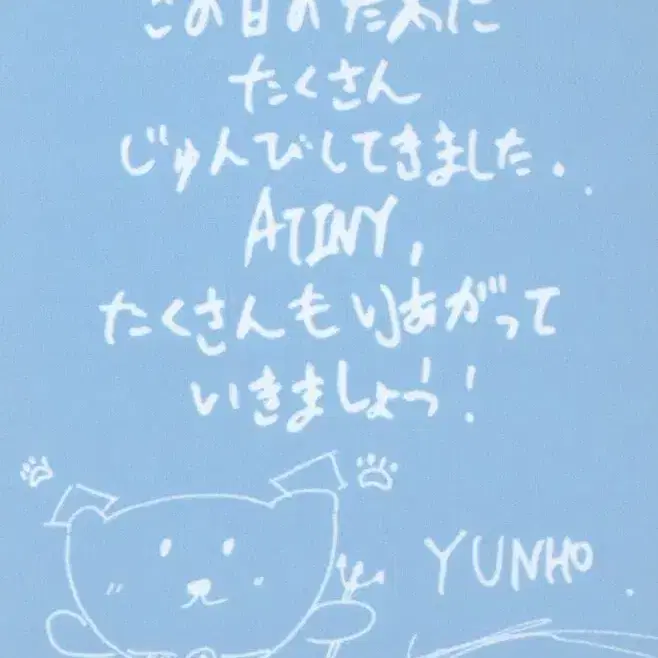 この日のために
たくさん
じゅんびしてきました.
ATINY,
たくさんもりあがって
いきましょう!
YUNHO.